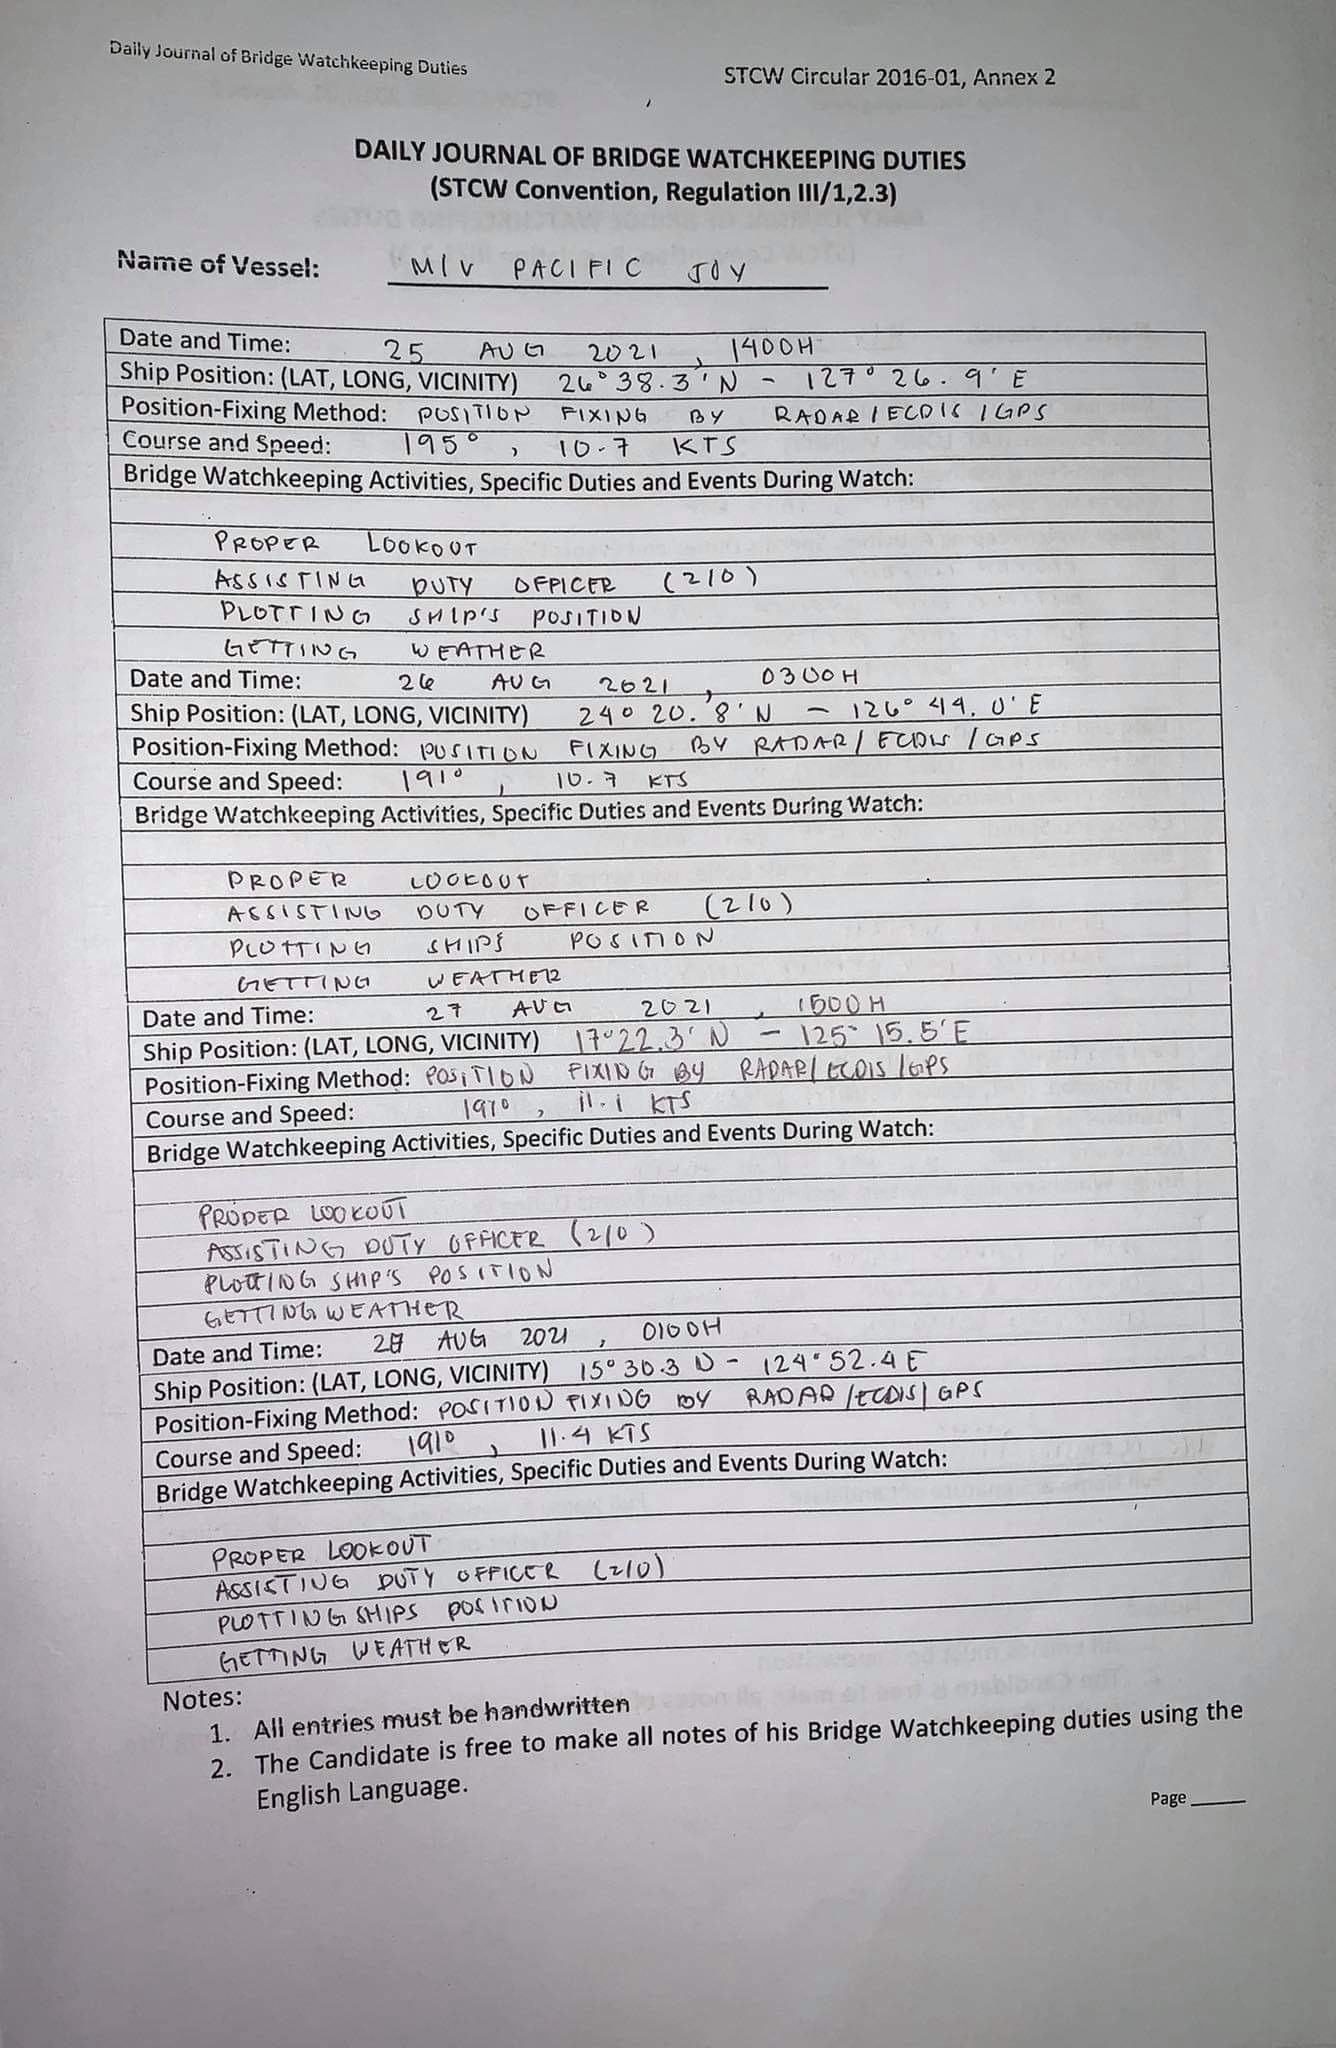 Daily Journal of Bridge Watchkeeping Duties
STCW Circular 2016-01, Annex 2
DAILY JOURNAL OF BRIDGE WATCHKEEPING DUTIES
(STCW Convention, Regulation III/1,2.3)
Name of Vessel: M/V PACIFIC JOY
Date and Time: 25 AUG 2021, 1400H
Ship Position: (LAT, LONG, VICINITY) 26° 38.3'N - 127° 26.9'E
Position-Fixing Method: POSITION FIXING BY RADAR/ECDIS/GPS
Course and Speed: 195°, 10.7 KTS
Bridge Watchkeeping Activities, Specific Duties and Events During Watch:
PROPER LOOKOUT
ASSISTING DUTY OFFICER (2/0)
PLOTTING SHIP'S POSITION
GETTING WEATHER
Date and Time: 26 AUG 2021, 0300H
Ship Position: (LAT, LONG, VICINITY) 24° 20.8'N - 126° 44.0'E
Position-Fixing Method: POSITION FIXING BY RADAR/ECDIS/GPS
Course and Speed: 191°, 10.7 KTS
Bridge Watchkeeping Activities, Specific Duties and Events During Watch:
PROPER LOOKOUT
ASSISTING DUTY OFFICER (2/0)
PLOTTING SHIPS POSITION
GETTING WEATHER
Date and Time: 27 AUG 2021, 1500H
Ship Position: (LAT, LONG, VICINITY) 17° 22.3'N - 125° 15.5'E
Position-Fixing Method: POSITION FIXING BY RADAR/ECDIS/GPS
Course and Speed: 191°, 11.1 KTS
Bridge Watchkeeping Activities, Specific Duties and Events During Watch:
PROPER LOOKOUT
ASSISTING DUTY OFFICER (2/0)
PLOTTING SHIP'S POSITION
GETTING WEATHER
Date and Time: 28 AUG 2021, 0100H
Ship Position: (LAT, LONG, VICINITY) 15° 30.3 N - 124° 52.4 E
Position-Fixing Method: POSITION FIXING BY RADAR/ECDIS/GPS
Course and Speed: 191°, 11.4 KTS
Bridge Watchkeeping Activities, Specific Duties and Events During Watch:
PROPER LOOKOUT
ASSISTING DUTY OFFICER (2/0)
PLOTTING SHIPS POSITION
GETTING WEATHER
Notes:
1. All entries must be handwritten
2. The Candidate is free to make all notes of his Bridge Watchkeeping duties using the
English Language.
Page